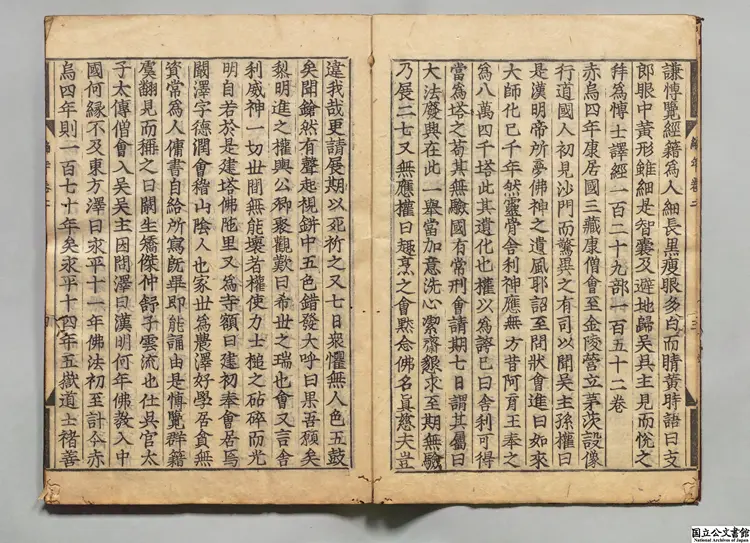 謙博覽經籍為人細長黑瘦眼多白而睛黃時語曰支
郎眼中黃形雖細是智囊及避地歸吳吳主見而悅之
拜為博士譯經一百二十九部一百五十二卷
赤烏四年康居國三藏康僧會至金陵營立茅茨設像
行道國人初見沙門而驚異之有司以聞吳主孫權曰
是漢明帝所夢佛神之遺風耶詔至問狀會進曰如來
大師化已千年然靈骨舍利神應無方昔阿育王奉之
為八萬四千塔此其遺化也權以為誇已曰舍利可得
當為塔之苟其無驗國有常刑會請期七日謂其屬曰
大法廢興在此一舉當加意洗心潔齋懇求至期無驗
乃展二七又無應權曰趣烹之會默念佛名真慈夫豈
違我哉更請展期以死祈之又七日衆懼無人色五鼓
矣聞鎗然有聲起視缾中五色錯發大呼曰果吾願矣
黎明進之權與公卿聚觀歎曰希世之瑞也會又言舍
利威神一切世間無能壞者權使力士槌之砧碎而光
明自若於是建塔佛陀里又為寺額曰建初奉會居焉
闞澤字德潤會稽山陰人也家世為農澤好學居貧無
資常為人傭書自給所寫既畢即能誦由是博覽群籍
虞翻見而稱之曰闞生矯傑仲舒子雲流也仕吳官太
子太傅僧會入吳吳主因問澤曰漢明何年佛教入中
國何緣不及東方澤曰永平十一年佛法初至計今赤
烏四年則一百七十年矣永平十四年五嶽道士褚善
国立公文書館
National Archives of Japan